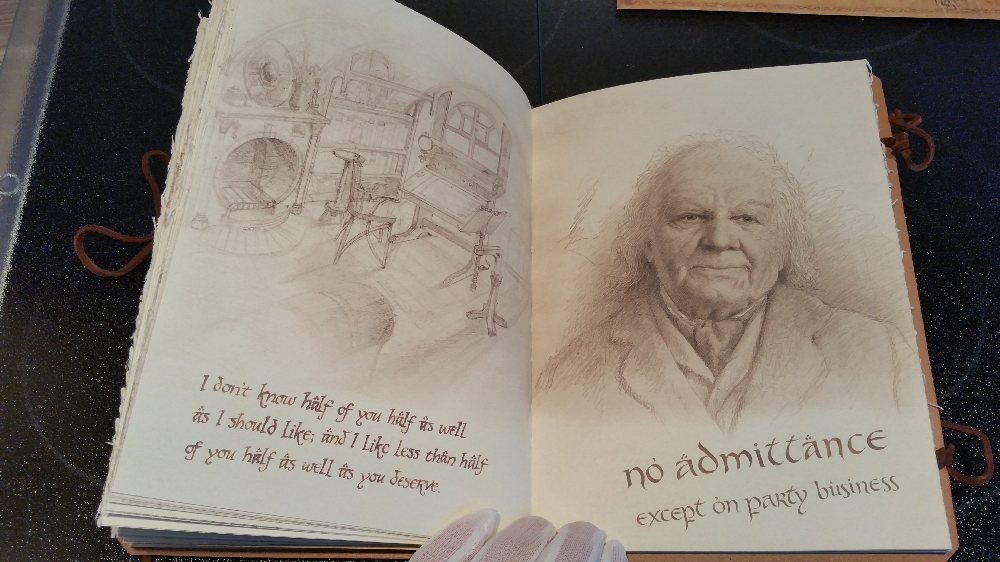 I don't know half of you half as well
as I should like; and I like less than half
of you half as well as you deserve.
no admittance
except on party business